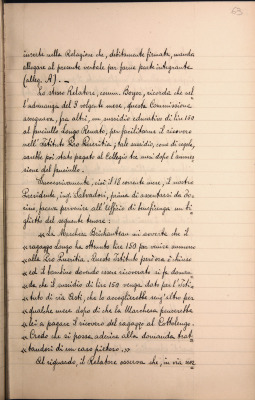 53
inserte nella Relazione che, debitamente firmata, manda
allegare al presente verbale per farne parte integrante
(alleg. A). —
Lo stesso Relatore, comm. Boyer, ricorda che nel
l'adunanza del 3 volgente mese, questa Commissione
assegnava, fra altri, un sussidio educativo di lire 150
al fanciullo Longo Renato, per facilitarne il ricovero
nell'Istituto Pro Pueritia; tale sussidio, come di regola,
sarebbe poi stato pagato al Collegio tre mesi dopo l'ammis
sione del fanciullo.
Successivamente, cioè il 18 corrente mese, il nostro
Presidente, ing. Salvadori, prima di assentarsi da
, faceva pervenire all'Ufficio di beneficenza un bi
glietto del seguente tenore:
« La Marchesa mi avverte che il
« ragazzo Longo ha ottenuto lire 150 per venire ammesso
« alla Pro Pueritia. Questo Istituto però ora è chiuso
« ed il bambino dovendo essere ricoverato si fa doman
« da, che il sussidio di lire 150 venga dato per l'Isti
« tuto di via Asti, che lo accoglierebbe senz'altro per
« qualche mese dopo di che la Marchesa penserebbe
« lei a pagare il ricovero del ragazzo al Cottolengo.
« Credo che si possa aderire alla domanda trat
« tandosi di un caso pietoso. »
Al riguardo, il Relatore osserva che, in via